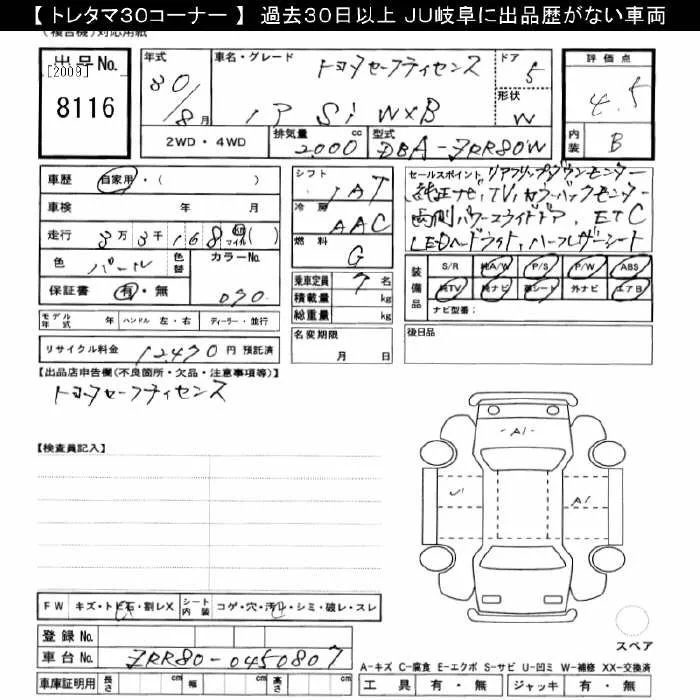 【 トレタマ30コーナー 】 過去30日以上 JU岐阜に出品歴がない車両
(複合機)対応用紙
出品No. [2009] 8116
年式 30/8月
車名・グレード トヨタセーフティセンス
1P Si W×B
ドア 5
形状 W
評価点 4.5
内装 B
2WD・4WD 排気量 2000 cc 型式 DBA-ZRR80W
車歴 自家用・( )
車検 年 月
走行 3万3千168 km マイル ( )
色 パール 色替 カラーNo. 070
保証書 有・無
シフト IAT
冷房 AAC
燃料 G
乗車定員 7名
積載量 kg
総重量 kg
セールスポイント リアフリップダウンモニター
純正ナビ、TV、カラーバックモニター
両側パワースライドドア、ETC
LEDヘッドライト、ハーフレザーシート
装備品 S/R 純A/W P/S P/W ABS
純TV 純ナビ 革シート 外ナビ エアB
ナビ型番:
モデル年式 年 ハンドル 左・右 ディーラー・並行
名変期限 月 日
後日品
リサイクル料金 12,470 円 預託済
【出品店申告欄(不良箇所・欠品・注意事項等)】
トヨタセーフティセンス
【検査員記入】
A1
U1
A1
FW キズ・トビ石・割レX シート内装 コゲ・穴・汚レ・シミ・破レ・スレ
スペア
登録No.
車台No. ZRR80-0450807
A-キズ C-腐食 E-エクボ S-サビ U-凹ミ W-補修 XX-交換済
車庫証明用 長さ cm 幅 cm 高さ cm
工具 有・無 ジャッキ 有・無